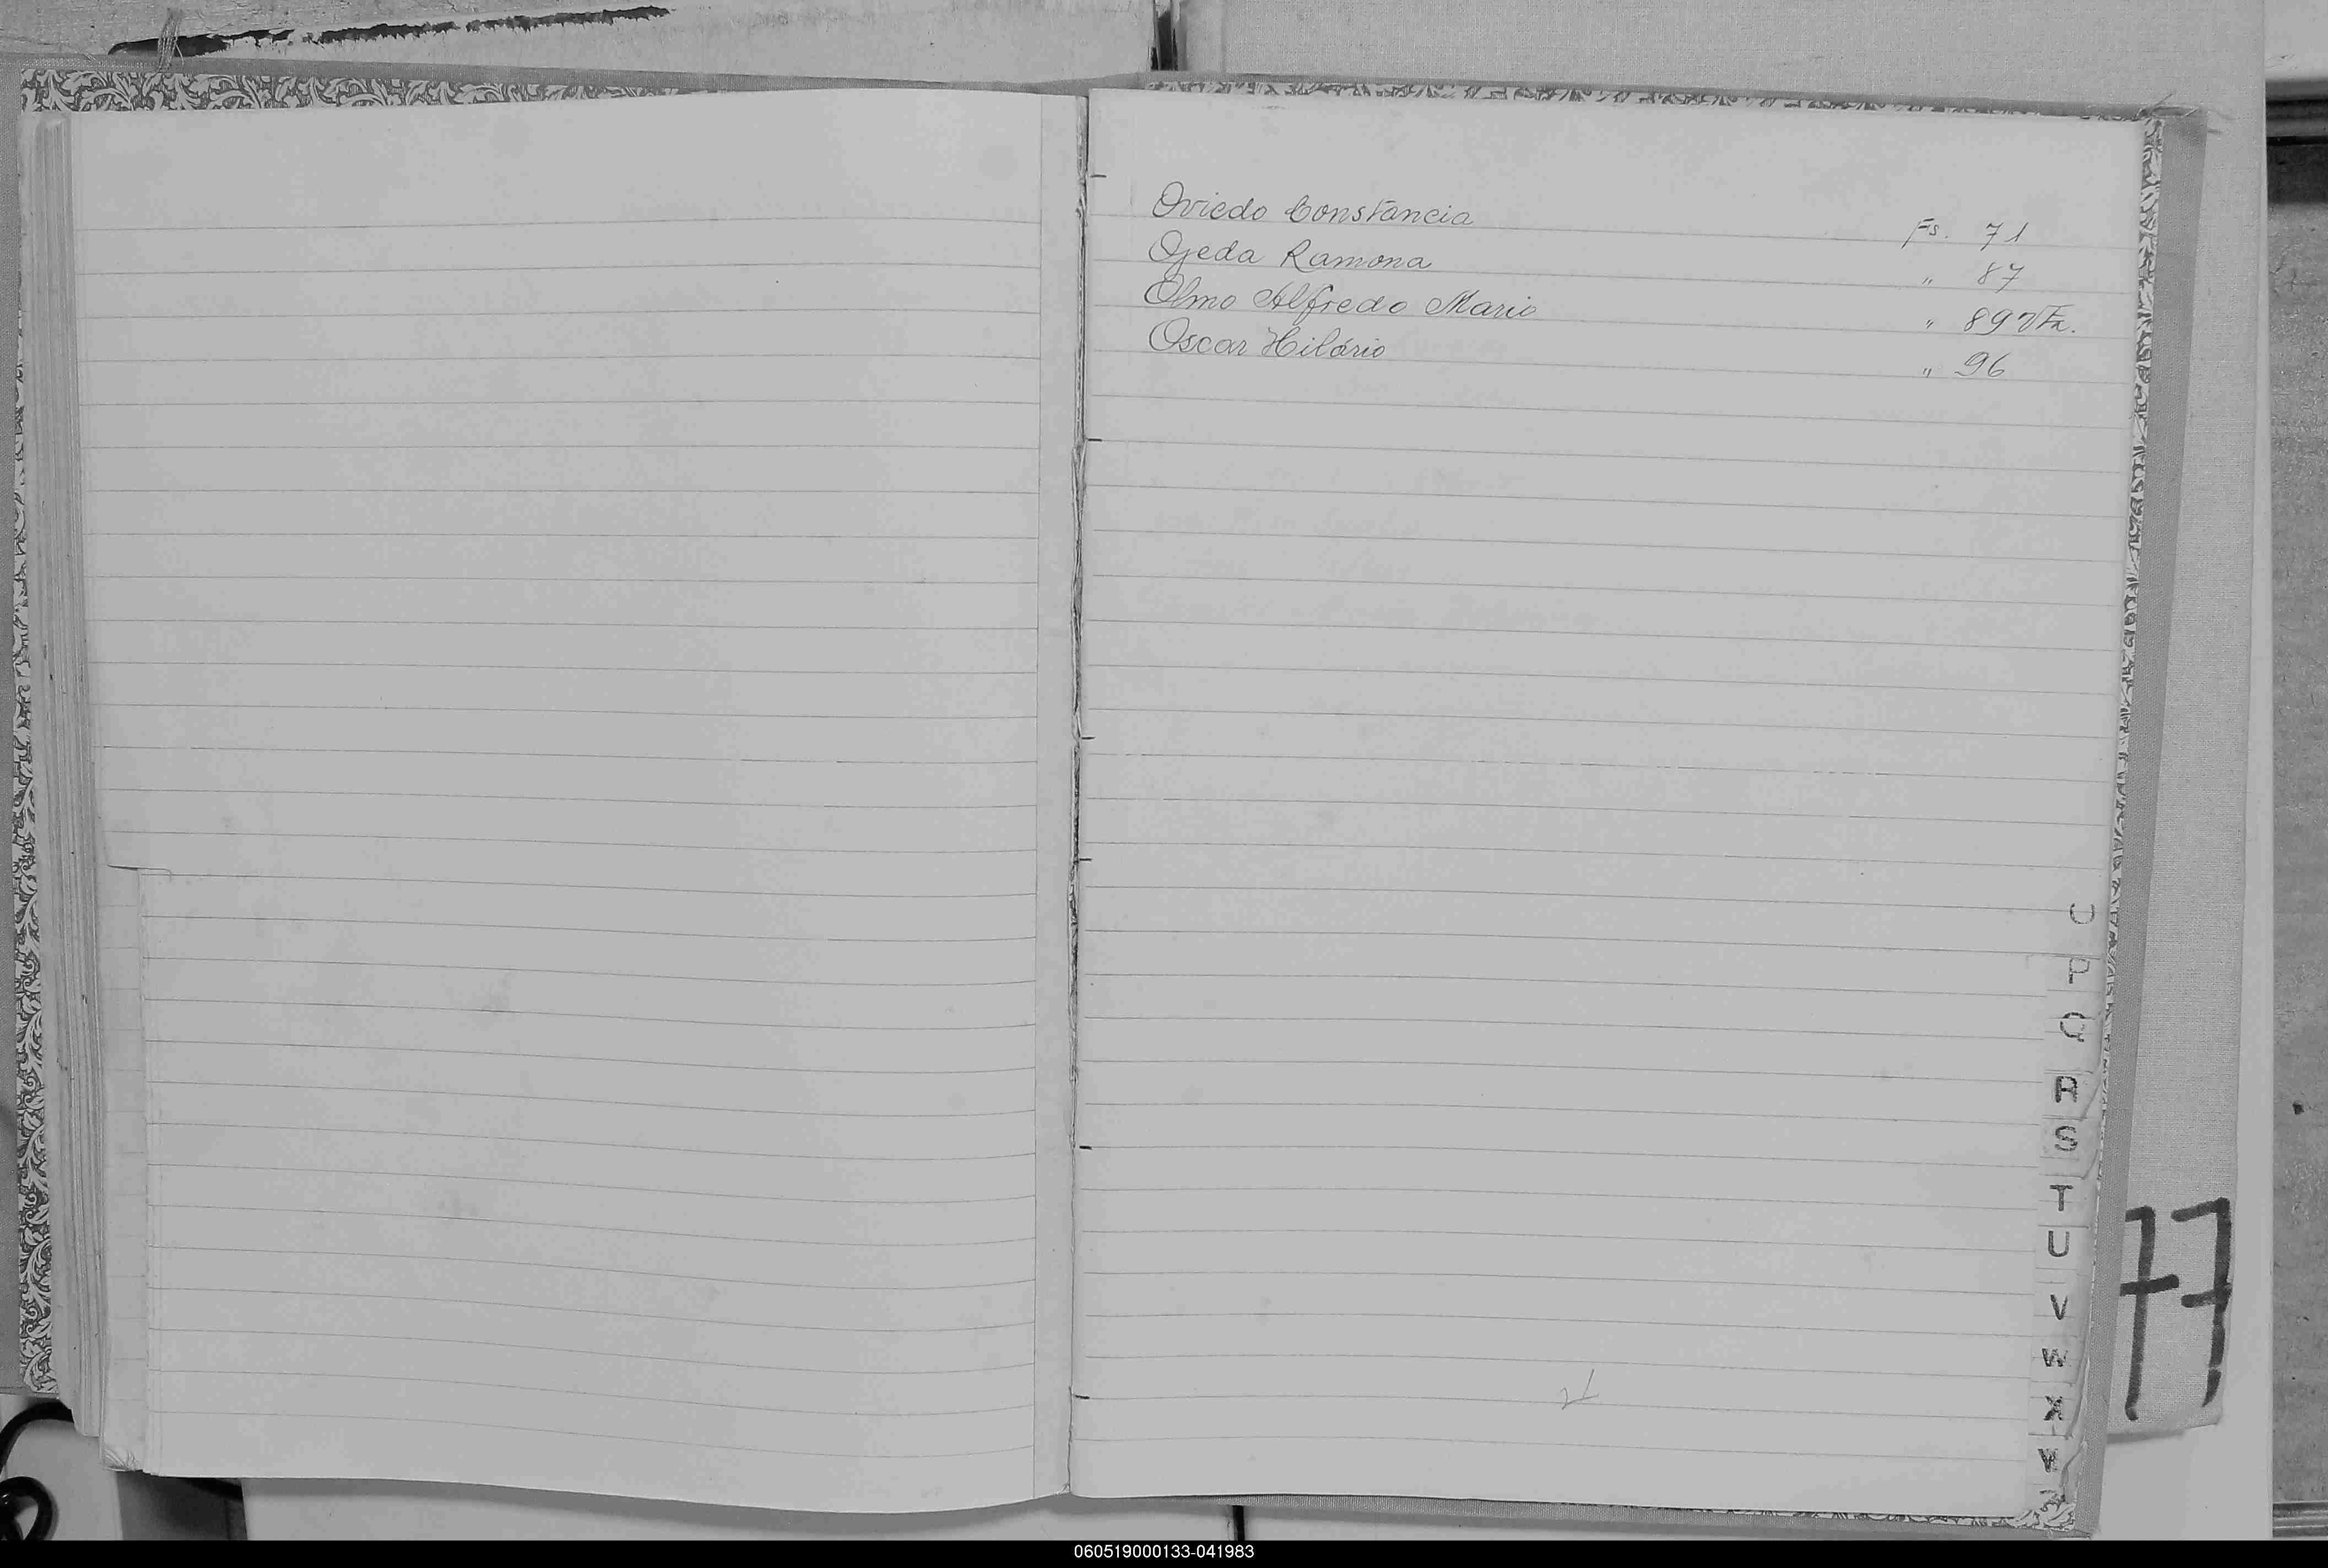 Oviedo Constancia Fs. 71
Ojeda Ramona " 87
Olmo Alfredo Mario " 89 vta.
Oscar Hilário " 96
O
P
Q
R
S
T
U
V
W
X
Y
77
060519000133-041983